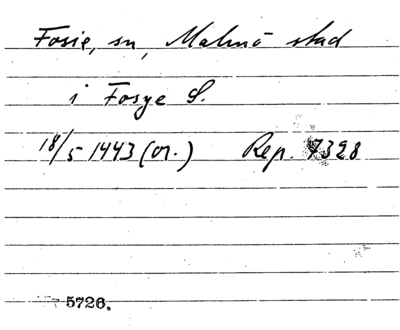 Fosie, sn, Malmö stad
i Fosye S.
18/5 1443 (or.) Rep. 7328
5726.